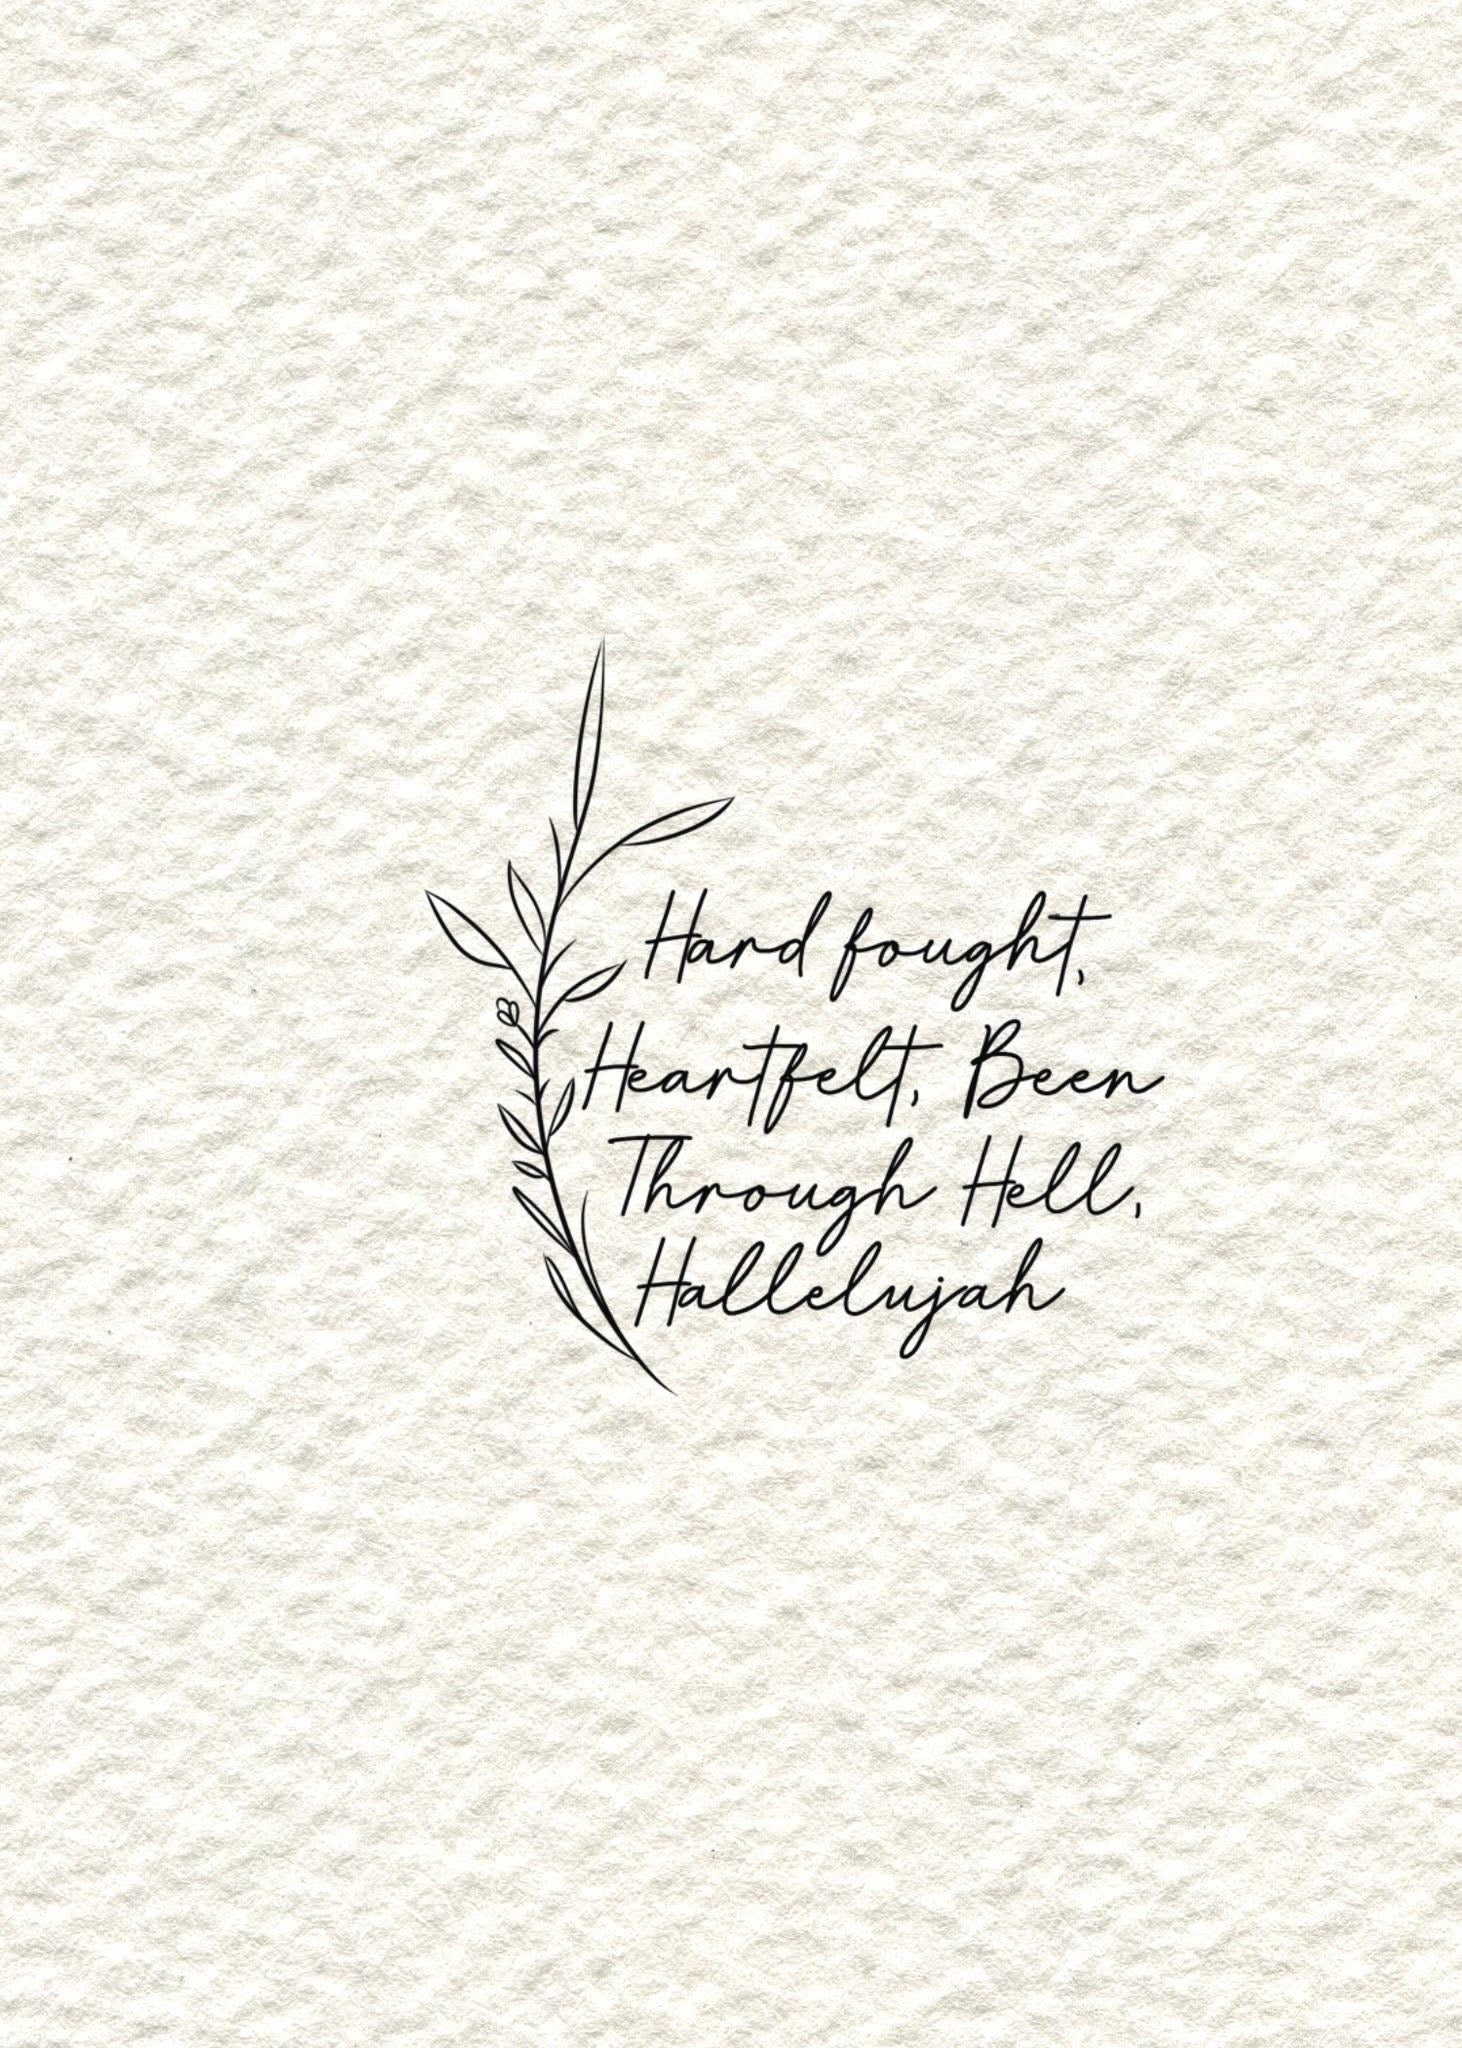 Hard fought,
Heartfelt, Been
Through Hell,
Hallelujah